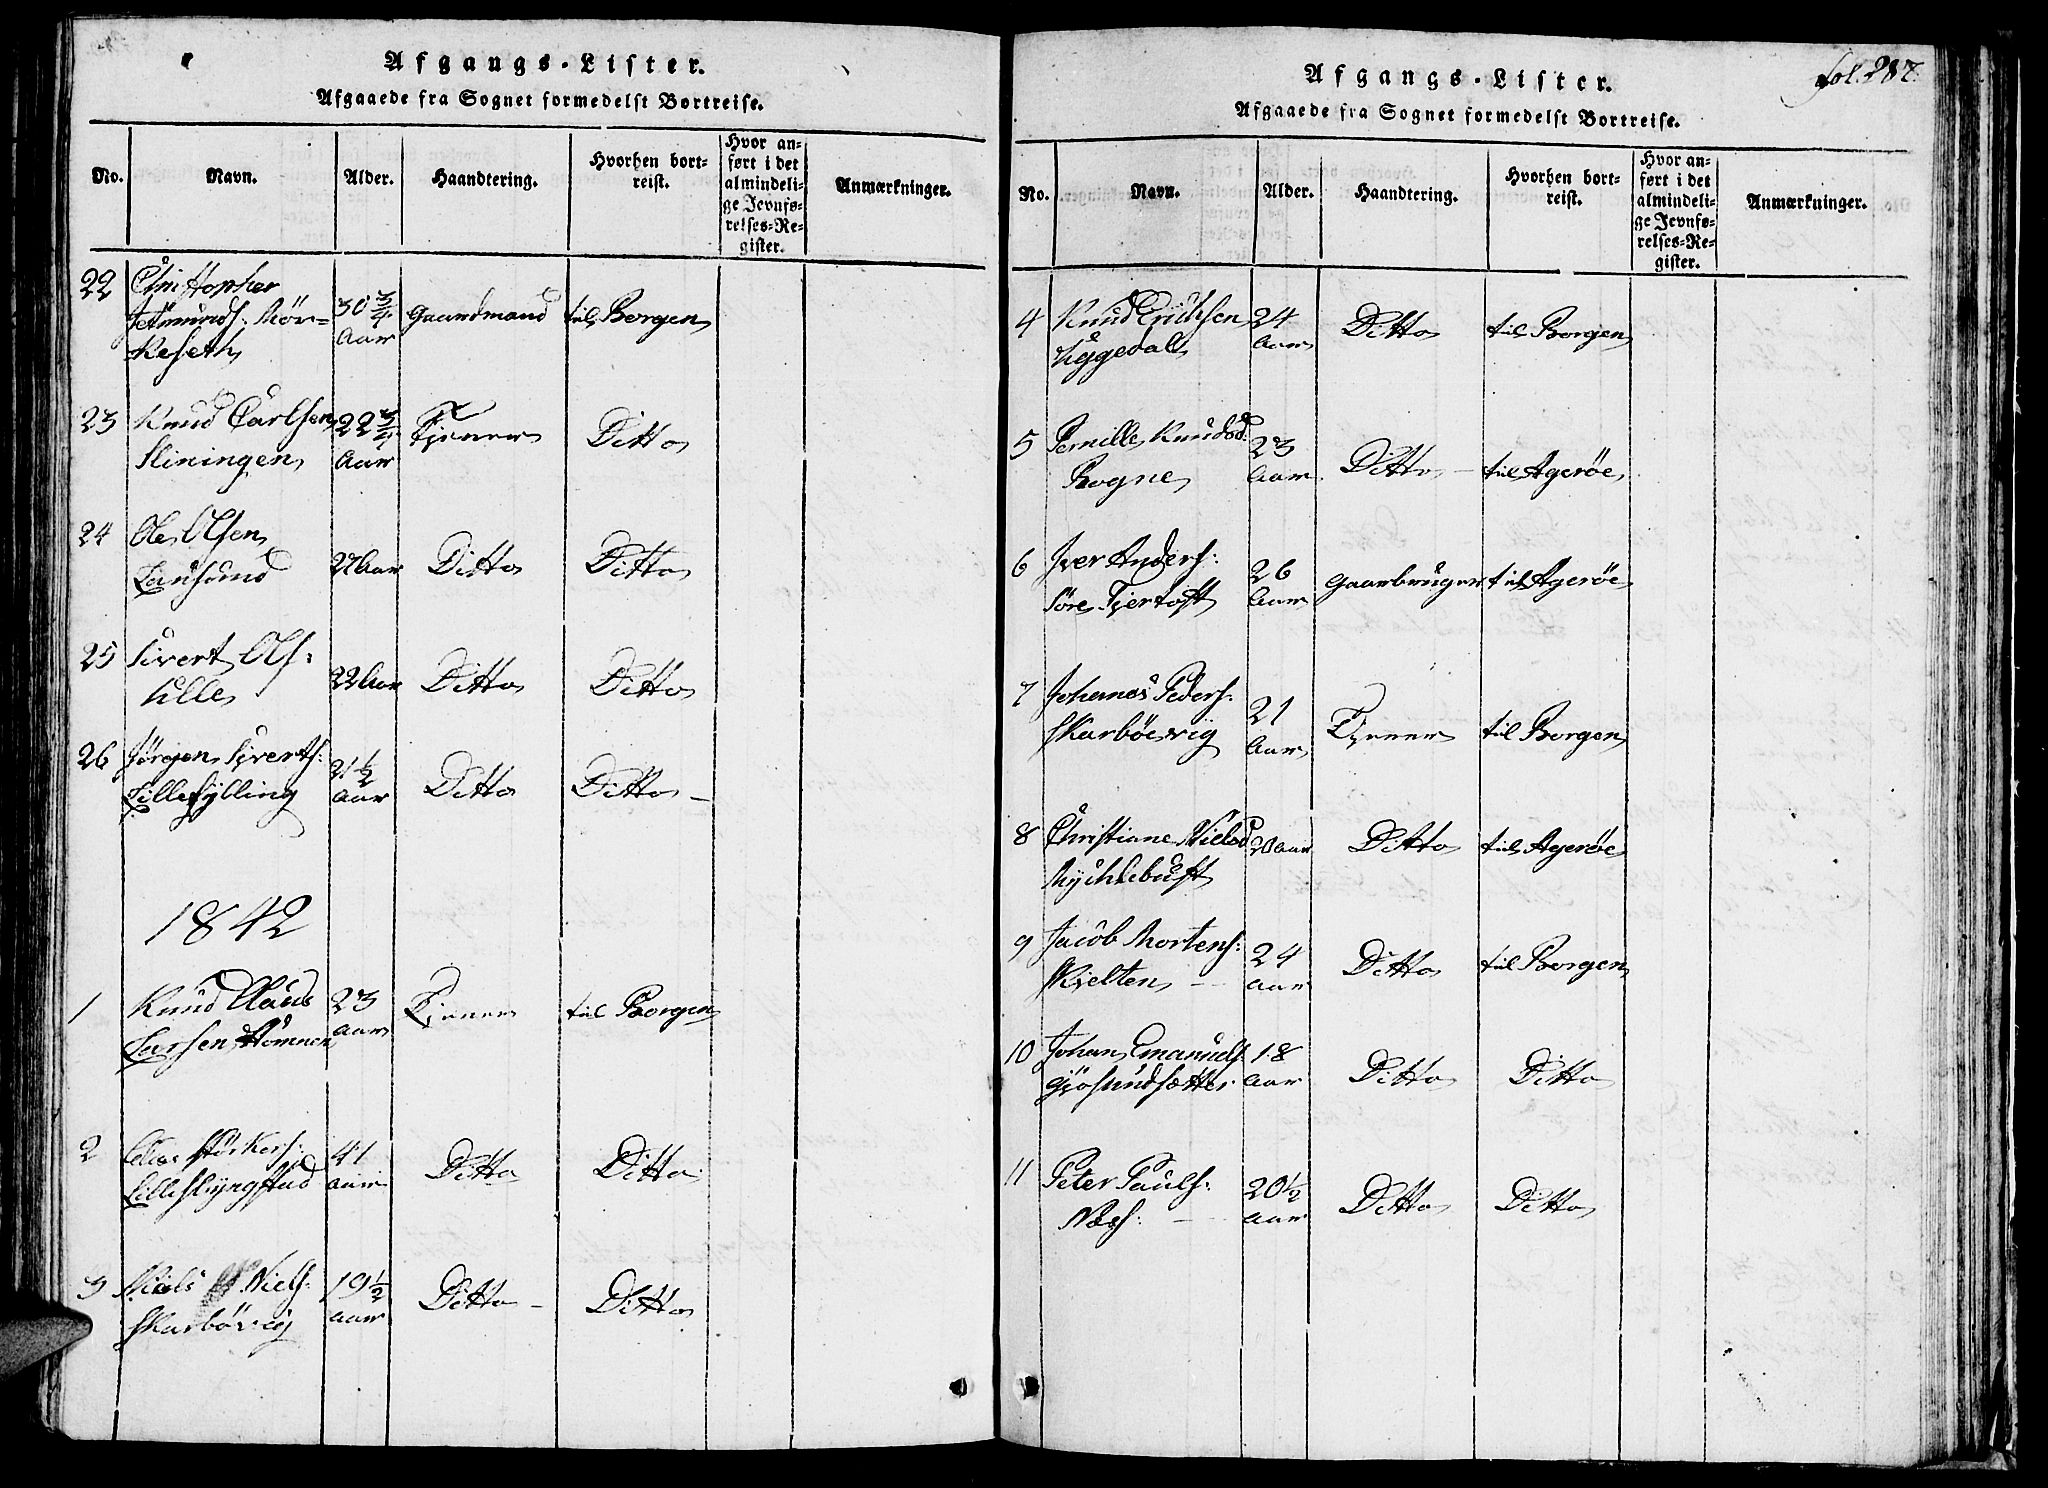 Afgangs-Lister.
Afgaaede fra Sognet formedelst Bortreise.
No. Navn. Alder. Haandtering. Hvorhen bortreist. Hvor anført i det almindelige Jevnførelses-Register. Anmærkninger.
22 Christopher
Jetmunds: Mør=
keseth 30 3/4 Aar Gaardmand til Borgen
23 Knud Carlsen
Sliningen 22 3/4 Aar Tjener Ditto
24 Ole Olsen
Lausund 22 Aar Ditto Ditto
25 Sivert Ols:
Ulle 22 Aar Ditto Ditto
26 Jørgen Siverts:
Lillefylling 21 1/2 Aar Ditto Ditto
1842
1 Knud Claus
Larsen 23 Aar Tjener til Borgen
2 Elias
Lilleslyngstad 41 Aar Ditto Ditto
3 Niels Niels:
Skarbövig 19 1/2 Aar Ditto Ditto
fol. 287.
Afgangs-Lister.
Afgaaede fra Sognet formedelst Bortreise.
No. Navn. Alder. Haandtering. Hvorhen bortreist. Hvor anført i det almindelige Jevnførelses-Register. Anmærkninger.
4 Knud Erichsen
Uggedal 24 Aar Ditto til Borgen
5 Pernille Knudsd:
Rogne 23 Aar Ditto til Agerøe
6 Iver Anders:
Søre Fjertoft 26 Aar Gaarbruger til Agerøe
7 Johannes Peders:
Skarböevig 21 Aar Tjener til Borgen
8 Christiane Nielsd
Mychlebust 20 Aar Ditto til Agerøe
9 Jacob Mortens:
Kielten 24 Aar Ditto til Borgen
10 Johan Emanuels
Gjøsundsætter 18 Aar Ditto Ditto
11 Peter Pauls:
Næss: 20 1/2 Aar Ditto Ditto